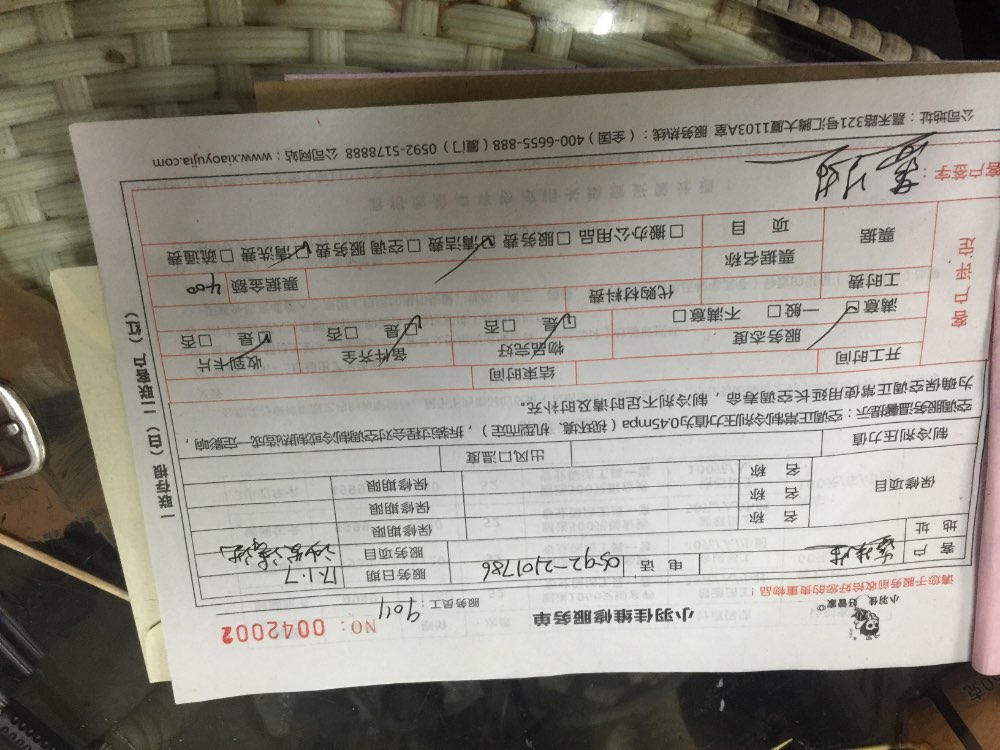 小羽佳 好管家®
小羽佳维修服务单
请您于服务前收拾好您的贵重物品！
服务员工：9011
NO: 0042002
客户
电话 0592-2101786
服务日期 17.1.7
地址
服务项目
保修项目
名称
保修期限
名称
保修期限
名称
保修期限
制冷剂压力值
出风口温度
空调服务温馨提示：空调正常制冷剂压力值为0.45mpa（视环境、机型而定），拆装过程会对空调制冷或制热造成一定影响，
为确保空调正常使用延长空调寿命，制冷剂不足时请及时补充。
客户评定
开工时间
结束时间
服务态度
物品完好
备件齐全
收到卡片
满意☑ 一般□ 不满意□
☑是 □否
☑是 □否
☑是 □否
工时费
代购材料费
票据
票据名称
票据金额 400
项目
□搬办公用品 □服务费 ☑清洁费 □空调服务费 ☑清洗费 □疏通费
客户签字：
公司地址：嘉禾路321号汇腾大厦1103A室 服务热线：（全国）400-6655-888（厦门）0592-5178888 公司网站：www.xiaoyujia.com
一联存根（白）二联客户（红）